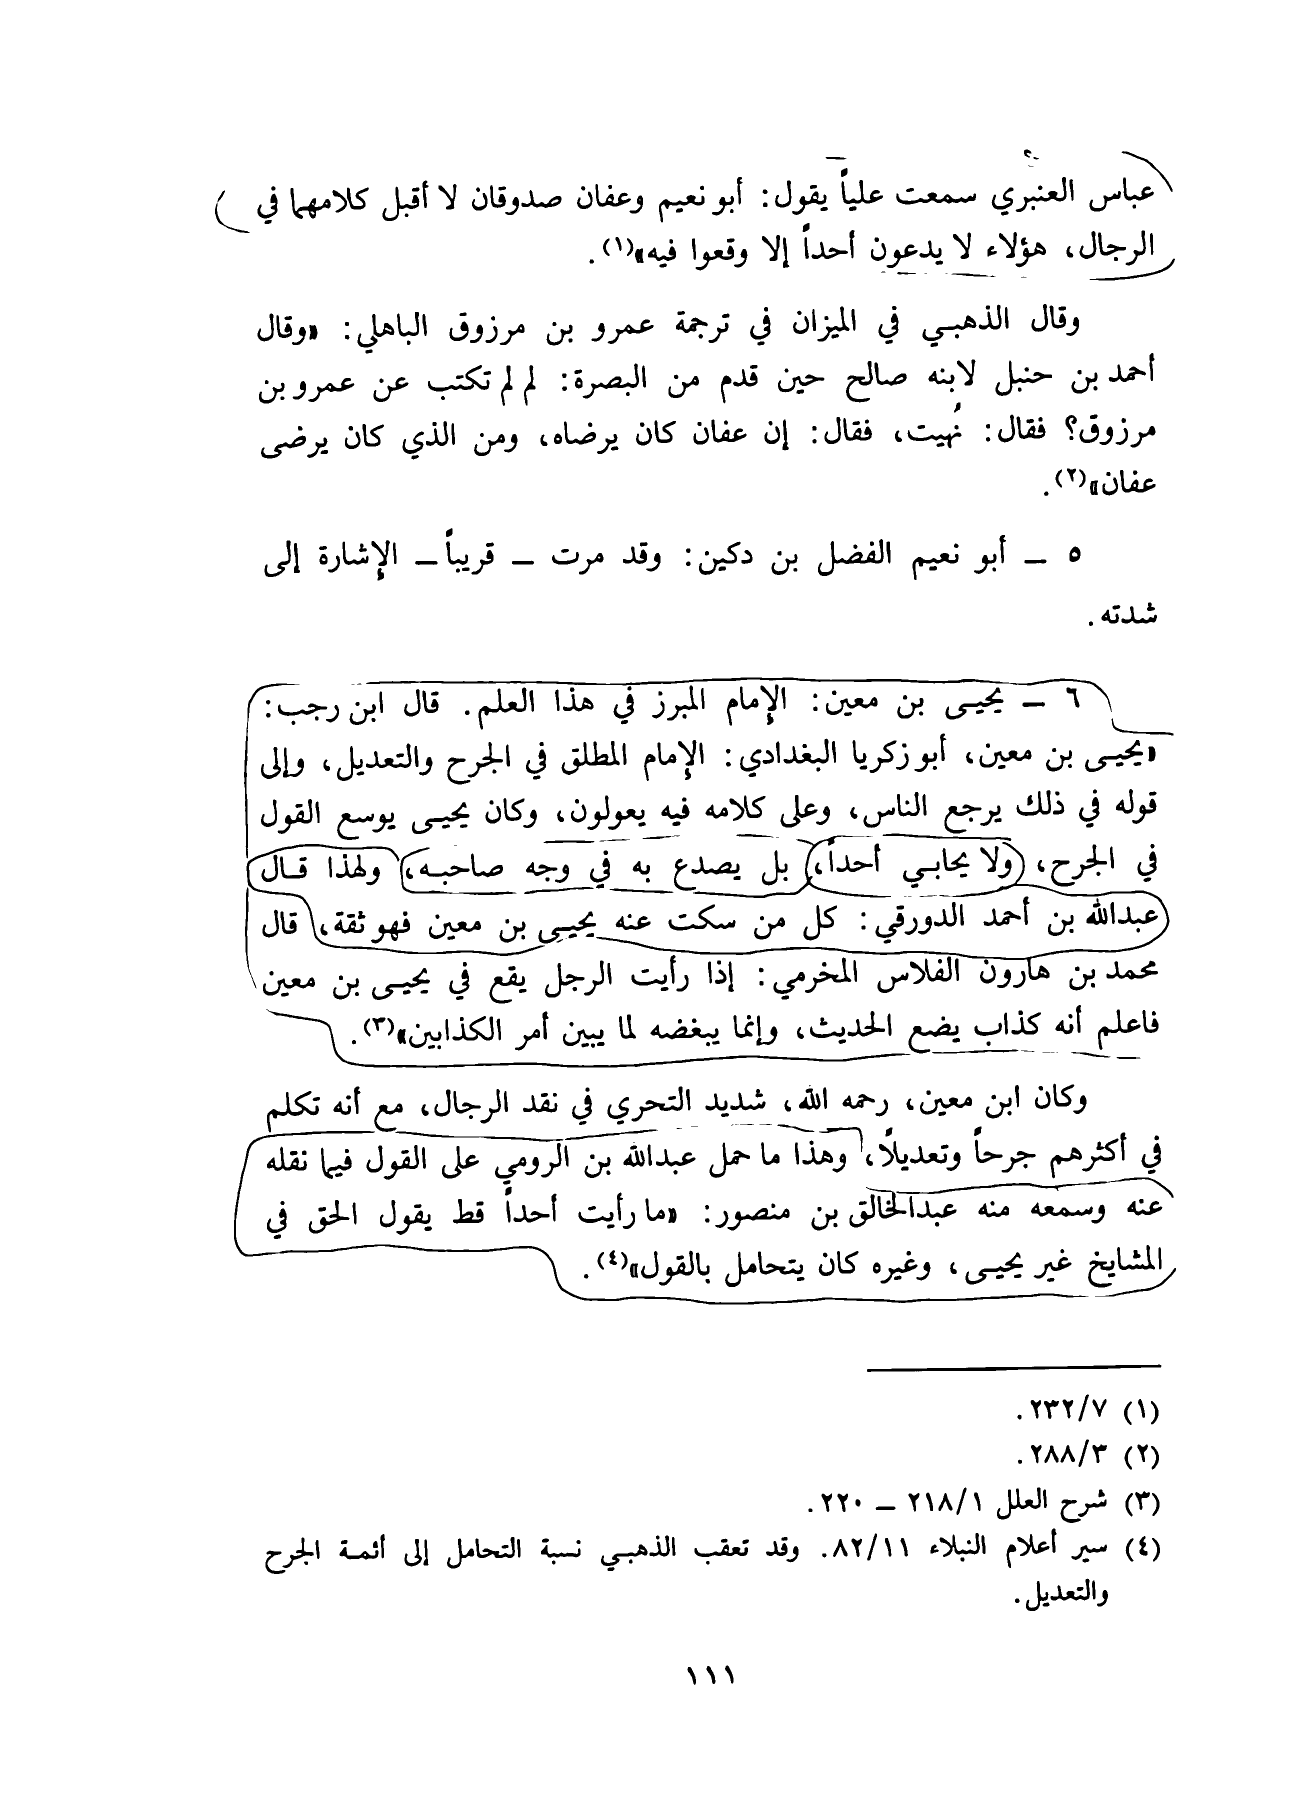 عباس العنبري سمعت علياً يقول: أبو نعيم وعفان صدوقان لا أقبل كلامهما في
الرجال، هؤلاء لا يدعون أحداً إلا وقعوا فيه»(١).
وقال الذهبي في الميزان في ترجمة عمرو بن مرزوق الباهلي: «وقال
أحمد بن حنبل لابنه صالح حين قدم من البصرة: لم لم تكتب عن عمرو بن
مرزوق؟ فقال: نُهيت، فقال: إن عفان كان يرضاه، ومن الذي كان يرضى
عفان»(٢).
٥ ـ أبو نعيم الفضل بن دكين: وقد مرت ـ قريباً ـ الإشارة إلى
شدته.
٦ ـ يحيى بن معين: الإمام المبرز في هذا العلم. قال ابن رجب:
«يحيى بن معين، أبو زكريا البغدادي: الإمام المطلق في الجرح والتعديل، وإلى
قوله في ذلك يرجع الناس، وعلى كلامه فيه يعولون، وكان يحيى يوسع القول
في الجرح، ولا يحابي أحداً، بل يصدع به في وجه صاحبه، ولهذا قال
عبدالله بن أحمد الدورقي: كل من سكت عنه يحيى بن معين فهو ثقة، قال
محمد بن هارون الفلاس المخرمي: إذا رأيت الرجل يقع في يحيى بن معين
فاعلم أنه كذاب يضع الحديث، وإنما يبغضه لما يبين أمر الكذابين»(٣).
وكان ابن معين، رحمه الله، شديد التحري في نقد الرجال، مع أنه تكلم
في أكثرهم جرحاً وتعديلاً، وهذا ما حمل عبدالله بن الرومي على القول فيما نقله
عنه وسمعه منه عبدالخالق بن منصور: «ما رأيت أحداً قط يقول الحق في
المشايخ غير يحيى، وغيره كان يتحامل بالقول»(٤).
(١) ٢٣٢/٧.
(٢) ٢٨٨/٣.
(٣) شرح العلل ٢١٨/١ ـ ٢٢٠.
(٤) سير أعلام النبلاء ٨٢/١١. وقد تعقب الذهبي نسبة التحامل إلى أئمة الجرح
والتعديل.
١١١